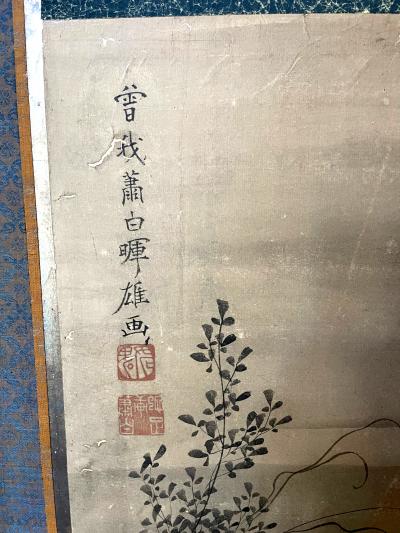 曾我蕭白暉雄画